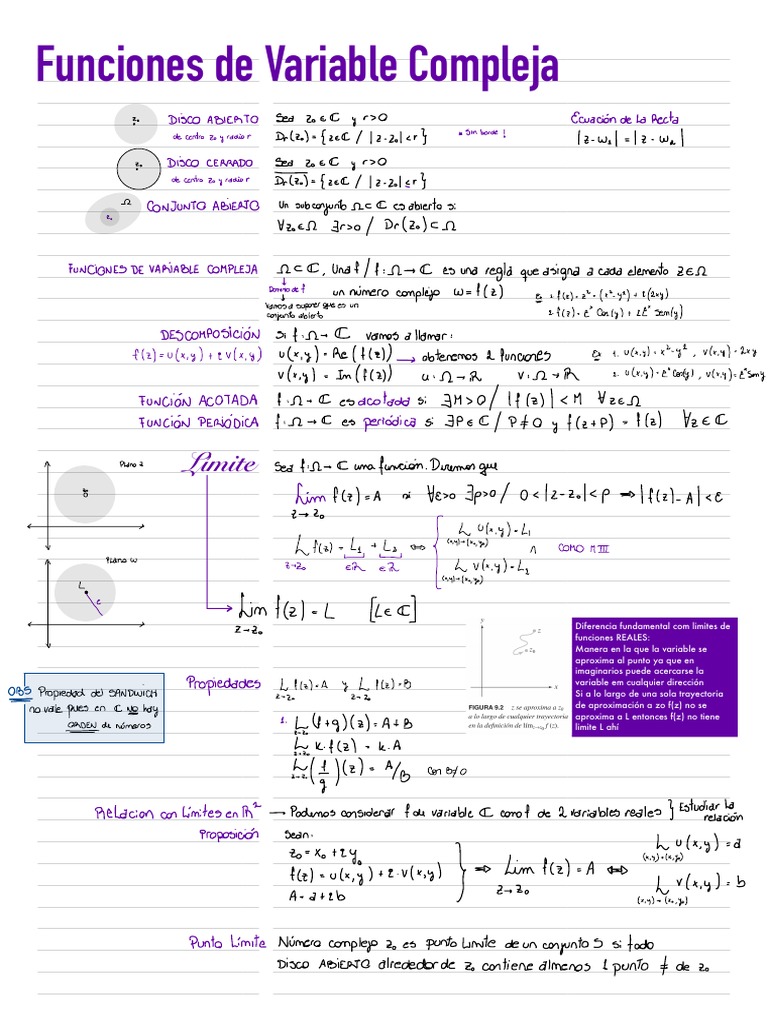 Funciones de Variable Compleja
z₀ DISCO ABIERTO Sea z₀ ∈ ℂ y r>0 Ecuación de La Recta
de centro z₀ y radio r Dr(z₀) = {z∈ℂ / |z-z₀|<r} • Sin borde! |z-w₁| = |z-w₂|
z₀ DISCO CERRADO Sea z₀ ∈ ℂ y r>0
de centro z₀ y radio r Dr(z₀) = {z∈ℂ / |z-z₀|≤r}
Ω z₀ CONJUNTO ABIERTO Un subconjunto Ω⊂ℂ es abierto si:
∀z₀∈Ω ∃r>0 / Dr(z₀)⊂Ω
FUNCIONES DE VARIABLE COMPLEJA Ω⊂ℂ, Una f / f:Ω→ℂ es una regla que asigna a cada elemento z∈Ω
Dominio de f un número complejo w=f(z) Ej: 1. f(z)=z²=(x²-y²)+i(2xy)
Vamos a suponer que es un conjunto abierto 2. f(z)=eˣ Cos(y)+i eˣ Sen(y)
DESCOMPOSICIÓN Si f:Ω→ℂ vamos a llamar:
f(z)=u(x,y)+i v(x,y) u(x,y)=Re(f(z)) → obtenemos 2 funciones Ej 1. u(x,y)=x²-y², v(x,y)=2xy
v(x,y)=Im(f(z)) u:Ω→ℝ v:Ω→ℝ 2. u(x,y)=eˣ Cos(y), v(x,y)=eˣ Sen y
FUNCIÓN ACOTADA f:Ω→ℂ es acotada si ∃M>0 / |f(z)|<M ∀z∈Ω
FUNCIÓN PERIÓDICA f:Ω→ℂ es periódica si ∃P∈ℂ / P≠0 y f(z+P)=f(z) ∀z∈ℂ
Plano z Límite Sea f:Ω→ℂ una función. Diremos que
Lim f(z)=A si ∀ε>0 ∃ρ>0 / 0<|z-z₀|<ρ ⇒ |f(z)-A|<ε
z→z₀
Plano w
L f(z)=L₁+L₂ ⇔ { L u(x,y)=L₁
z→z₀ ∈ℝ ∈ℝ (x,y)→(x₀,y₀) ∧ COMO M III
L v(x,y)=L₂
(x,y)→(x₀,y₀)
L ε
Lim f(z)=L [L∈ℂ]
z→z₀
y z z₀ x
FIGURA 9.2 z se aproxima a z₀
a lo largo de cualquier trayectoria
en la definición de lím z→z₀ f(z).
Diferencia fundamental com limites de
funciones REALES:
Manera en la que la variable se
aproxima al punto ya que en
imaginarios puede acercarse la
variable em cualquier dirección
Si a lo largo de una sola trayectoria
de aproximación a zo f(z) no se
aproxima a L entonces f(z) no tiene
limite L ahí
OBS Propiedad del SANDWICH
no vale pues en ℂ NO hay
ORDEN de números
Propiedades L f(z)=A y L f(z)=B
z→z₀ z→z₀
1. L (f+g)(z)=A+B
z→z₀
L k.f(z)=k.A
z→z₀
L (f/g)(z)=A/B con B≠0
z→z₀
Relacion con Límites en ℝ² → Podemos considerar f de variable ℂ como f de 2 variables reales } Estudiar la relación
Proposición Sean:
z₀=x₀+iy₀
f(z)=u(x,y)+i·v(x,y) } ⇒ Lim f(z)=A ⇔ L u(x,y)=a
A=a+ib z→z₀ (x,y)→(x₀,y₀)
L v(x,y)=b
(x,y)→(x₀,y₀)
Punto Límite Número complejo z₀ es punto límite de un conjunto S si todo
DISCO ABIERTO alrededor de z₀ contiene almenos 1 punto ≠ de z₀